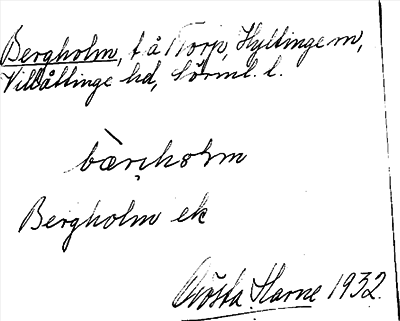 Bergholm, t. å Torp, Hyltinge sn,
Villåttinge hd, Sörml. l.
bærjhɷlm
Bergholm ek
Gösta Harne 1932.